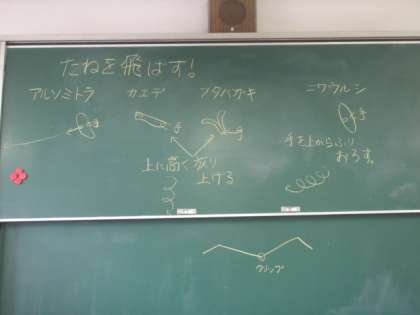 たねを飛ばす!
アルソミトラ
カエデ
フタバガキ
ニワウルシ
手
手
手
手
手を上からふり
おろす。
上に高く放り
上げる
クリップ